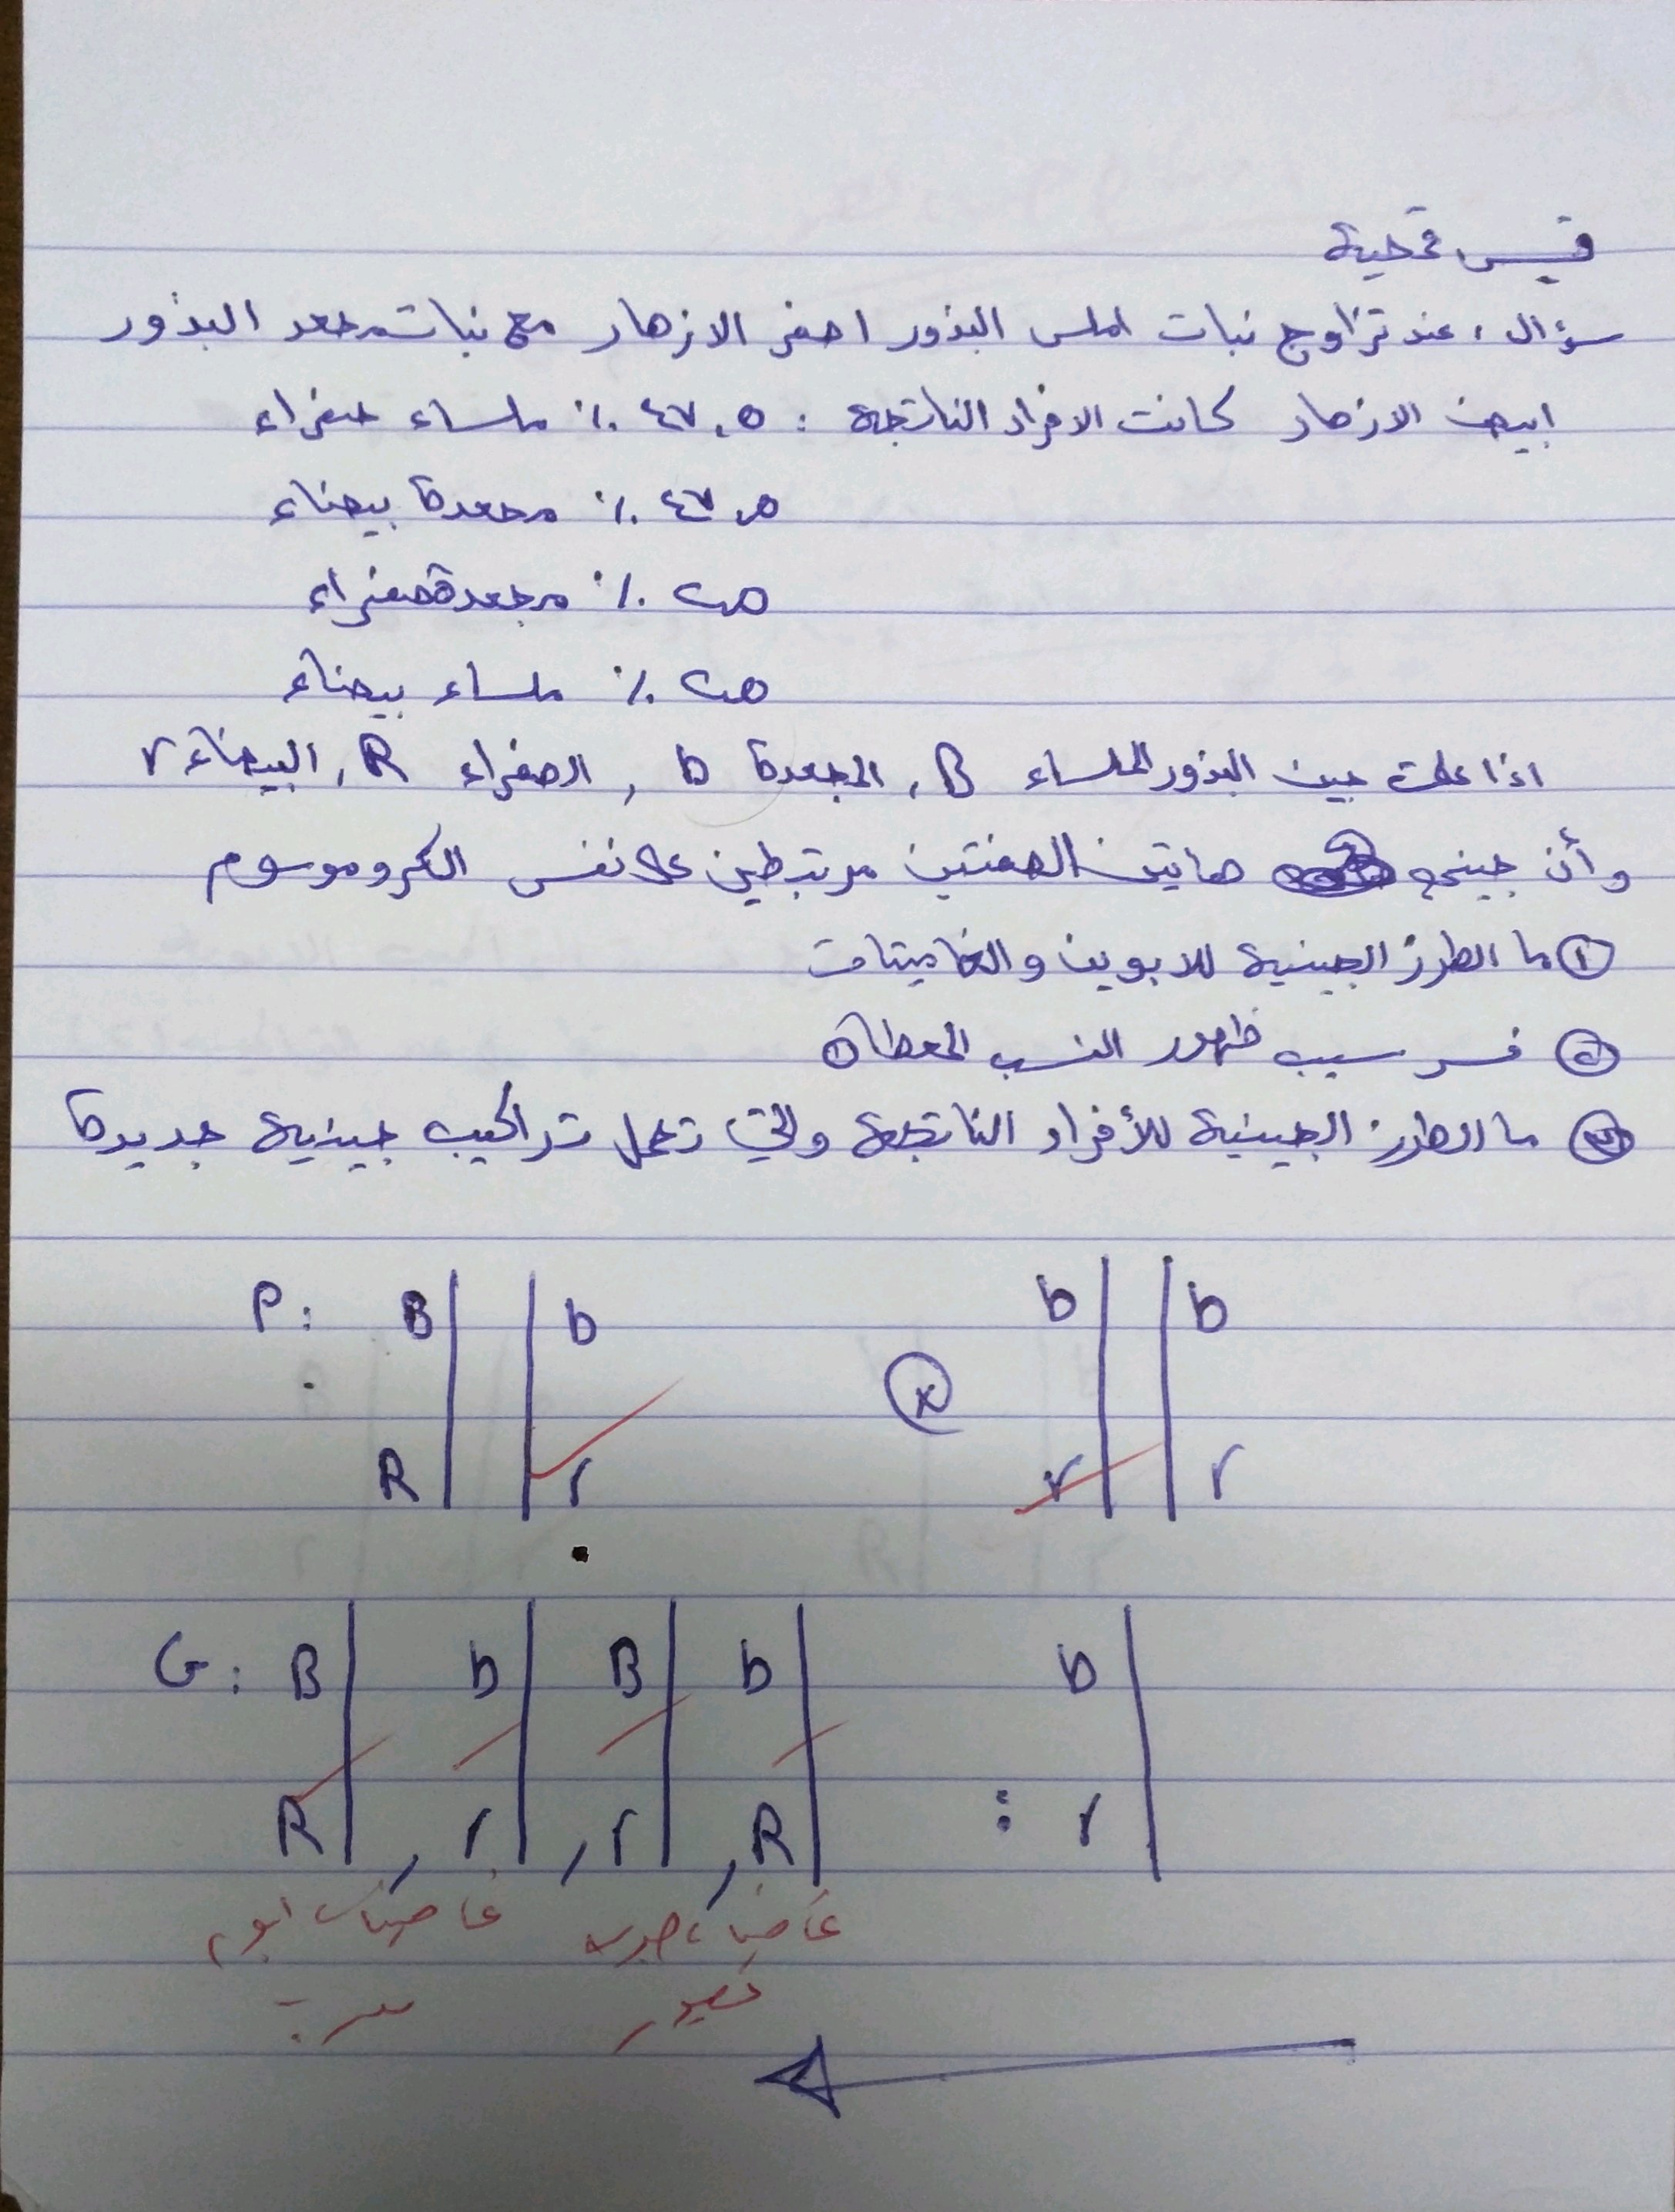 قيس قمحية
سؤال: عند تزاوج نبات املس البذور اصفر الازهار مع نبات مجعد البذور
ابيض الازهار كانت الافراد الناتجة : ٤٧,٥ ٪ ملساء صفراء
٤٧,٥ ٪ مجعدة بيضاء
٢,٥ ٪ مجعدة صفراء
٢,٥ ٪ ملساء بيضاء
اذا علمت جين البذور الملساء B, المجعدة b , الصفراء R, البيضاء r
وأن جيني هاتين الصفتين مرتبطين على نفس الكروموسوم
① ما الطرز الجينية للابوين والغاميتات
② فسر سبب ظهور النسب المعطاة
③ ما الطرز الجينية للأفراد الناتجة والتي تحمل تراكيب جينية جديدة
P: B b b b
R r ⓧ r r
G: B b B b b
R , r , r , R : r
غاميتات ابوية غاميتات جديدة
عبور